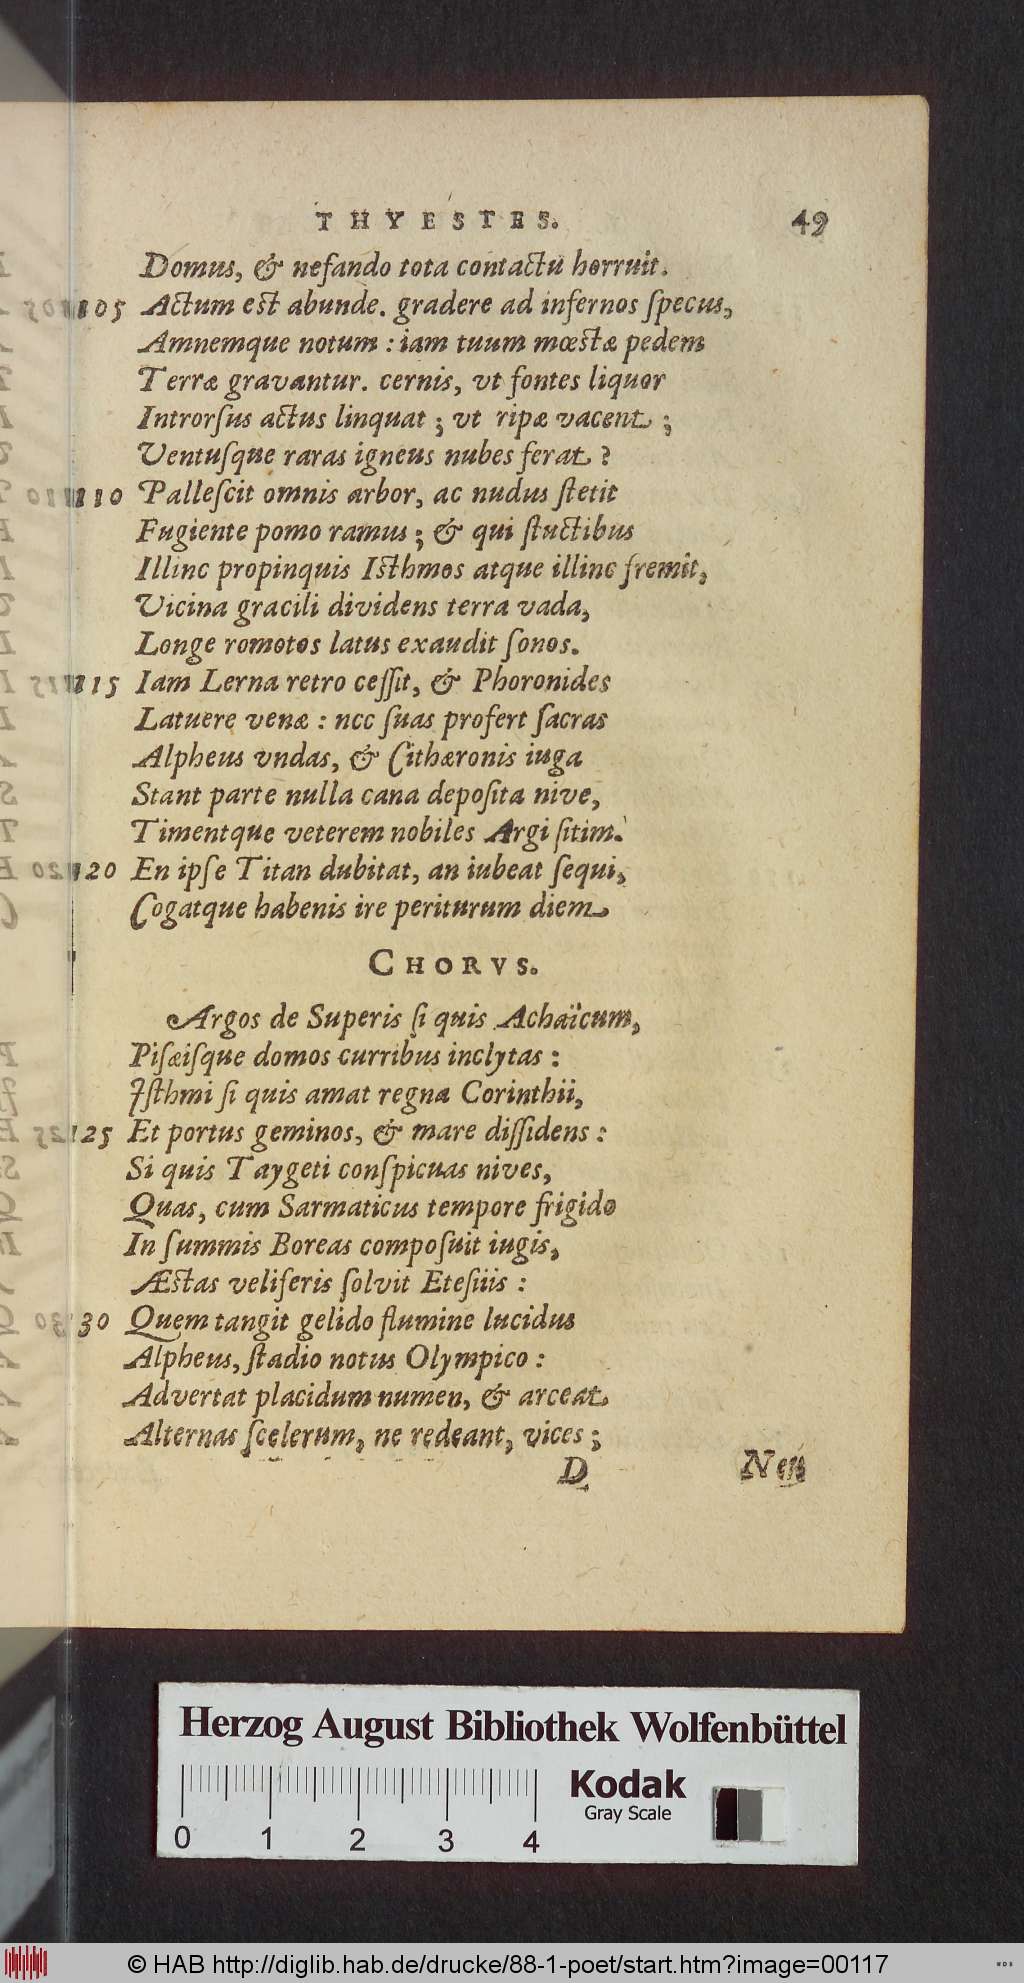 THYESTES. 49
Domus, & nefando tota contactu horruit.
105 Actum est abunde. gradere ad infernos ſpecus,
Amnemque notum : iam tuum mœstæ pedem
Terræ gravantur. cernis, vt fontes liquor
Introrſus actus linquat ; vt ripæ vacent ;
Ventuſque raras igneus nubes ferat ?
110 Palleſcit omnis arbor, ac nudus ſtetit
Fugiente pomo ramus ; & qui fluctibus
Illinc propinquis Isthmos atque illinc fremit,
Vicina gracili dividens terra vada,
Longe romotos latus exaudit ſonos.
115 Iam Lerna retro ceſſit, & Phoronides
Latuere venæ : ncc ſuas profert ſacras
Alpheus vndas, & Cithæronis iuga
Stant parte nulla cana depoſita nive,
Timentque veterem nobiles Argi ſitim.
120 En ipſe Titan dubitat, an iubeat ſequi,
Cogatque habenis ire periturum diem
CHORVS.
Argos de Superis ſi quis Achaïcum,
Piſæiſque domos curribus inclytas :
Iſthmi ſi quis amat regna Corinthii,
125 Et portus geminos, & mare diſſidens :
Si quis Taygeti conſpicuas nives,
Quas, cum Sarmaticus tempore frigido
In ſummis Boreas compoſuit iugis,
Æstas veliferis ſolvit Eteſiis :
130 Quem tangit gelido flumine lucidus
Alpheus, ſtadio notus Olympico :
Advertat placidum numen, & arceat
Alternas ſcelerum, ne redeant, vices ;
D Neu
Herzog August Bibliothek Wolfenbüttel
Kodak
Gray Scale
0 1 2 3 4
© HAB http://diglib.hab.de/drucke/88-1-poet/start.htm?image=00117